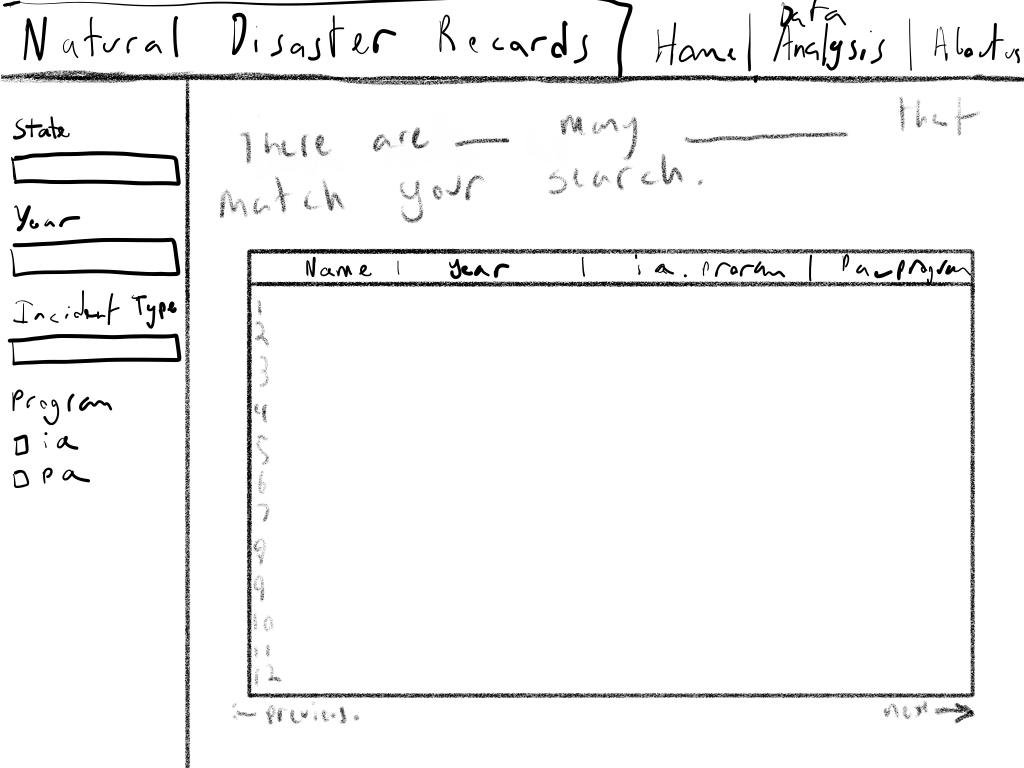 Natural Disaster Records
Home | Data Analysis | About us
State
Year
Incident Type
Program
ia
pa
There are __ many ______ that
match your search.
Name | year | ia. Proram | Pa_program
1
2
3
4
5
6
7
8
9
10
11
12
← previous.
next →